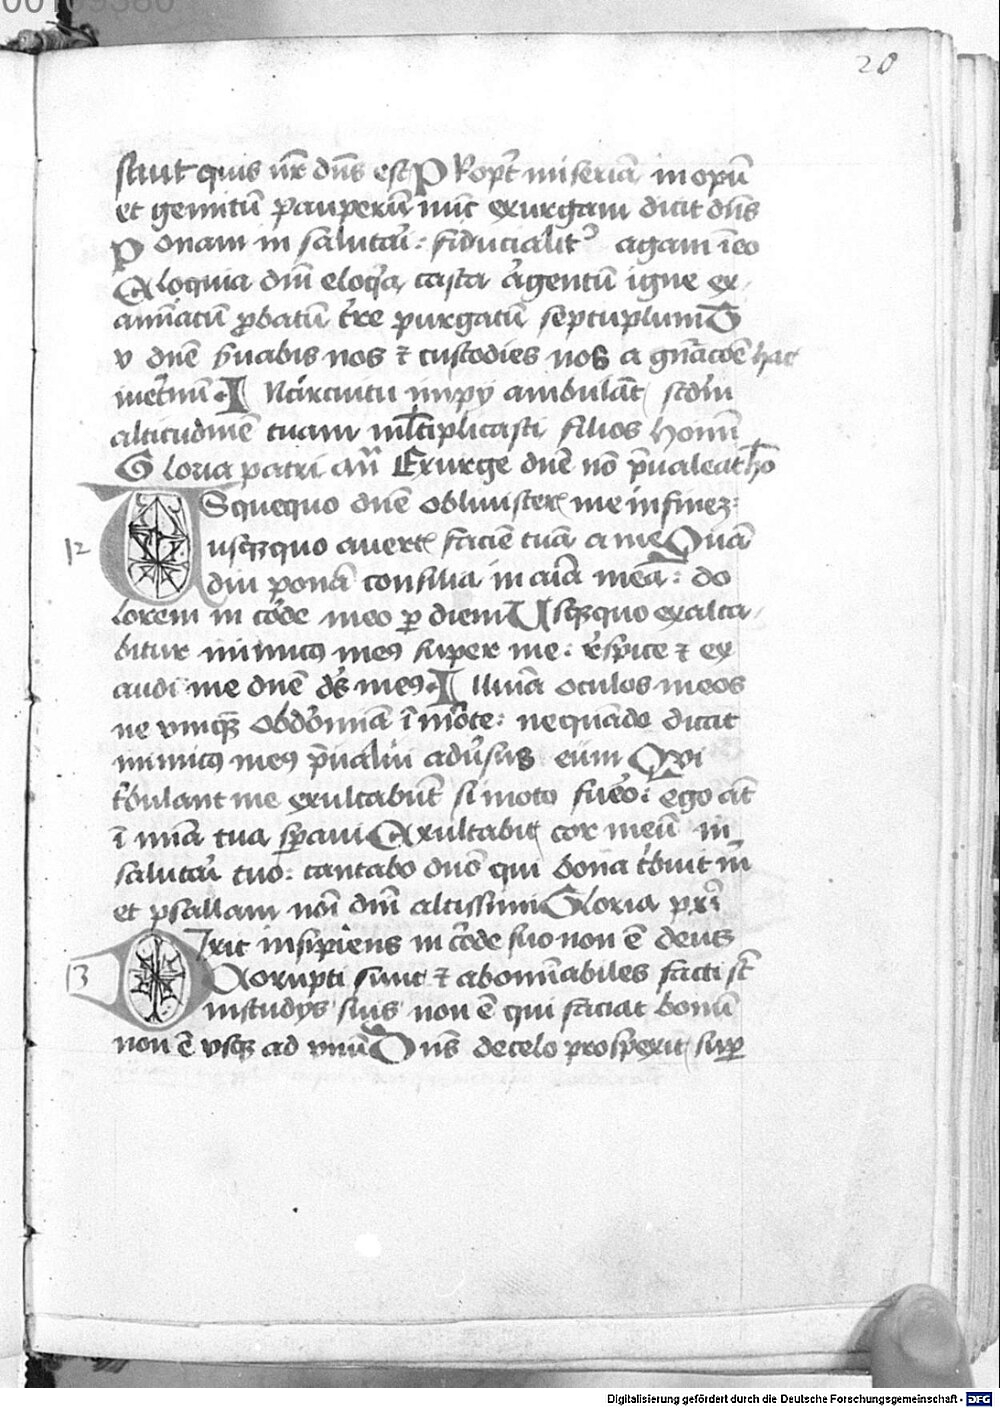 00109380
20
sunt quis nr̄ dn̄s est Propt̄ miseriā inopū
et gemitū pauperū nūc exurgam dicit dn̄s
Ponam in salutarı: fiducialit᷒ agam ı̄ eo
Eloquia dn̄i eloq̄a casta argentū igne ex
aminatū ꝓbatū t̄re purgatū septuplum T
v dn̄e s̄uabis nos ⁊ custodies nos a gn̄acōe hac
inet̄nū In circuitu impij ambulāt scd̄m
altitudinē tuam ml̄tiplicasti filios hominū
Gloria patri an̄ Exurge dn̄e nō p̄ualeat hō
12
Usquequo dn̄e obliuisceris me in finez:
usq̄quo auertis faciē tuā a me Quā
diu ponā consilia in aı̄a meā: do
lorem in corde meo ꝑ diem Usq̄quo exalta
bitur inimicꝰ meꝰ super me: respice ⁊ ex
audi me dn̄e ds̄ meꝰ Illumīa oculos meos
ne vnqꝫ obdormiā ı̄ morte: nequādo dicat
inimicꝰ meꝰ p̄ualui aduersus eum Qui
t̄bulant me exultabūt si moto fuero: ego aūt
ı̄ mı̄a tua sp̄aui Exultabit cor meū in
salutari tuo: cantabo dn̄o qui bona t̄buit m̄
et psallam noı̄ dn̄i altissimi Gloria pr̄i
13
Dixit insipiens in corde suo non ē deus
Corrupti sunt ⁊ abominabiles facti st̄
in studijs suis non ē qui faciat bonū
non ē vsqꝫ ad vnū Dn̄s de celo prospexit suꝑ
Digitalisierung gefördert durch die Deutsche Forschungsgemeinschaft - DFG